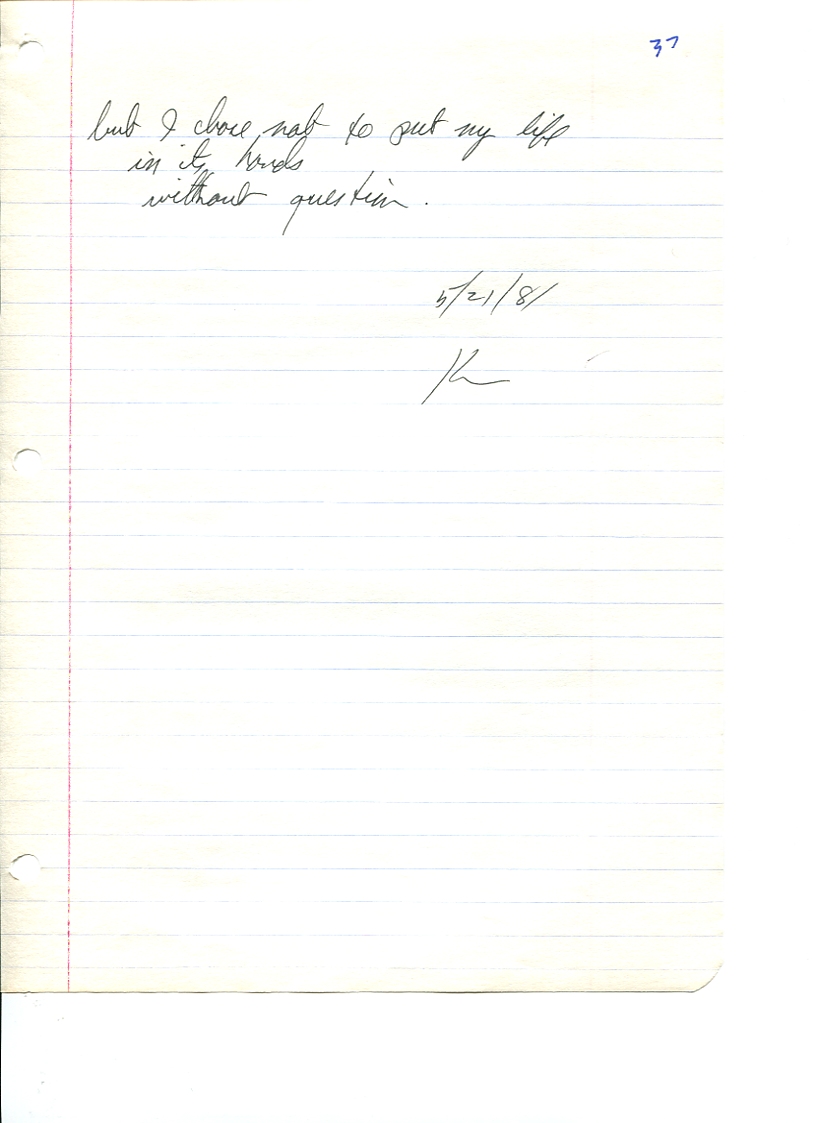 37
but I chose not to put my life
in its hands
without question.
5/21/81